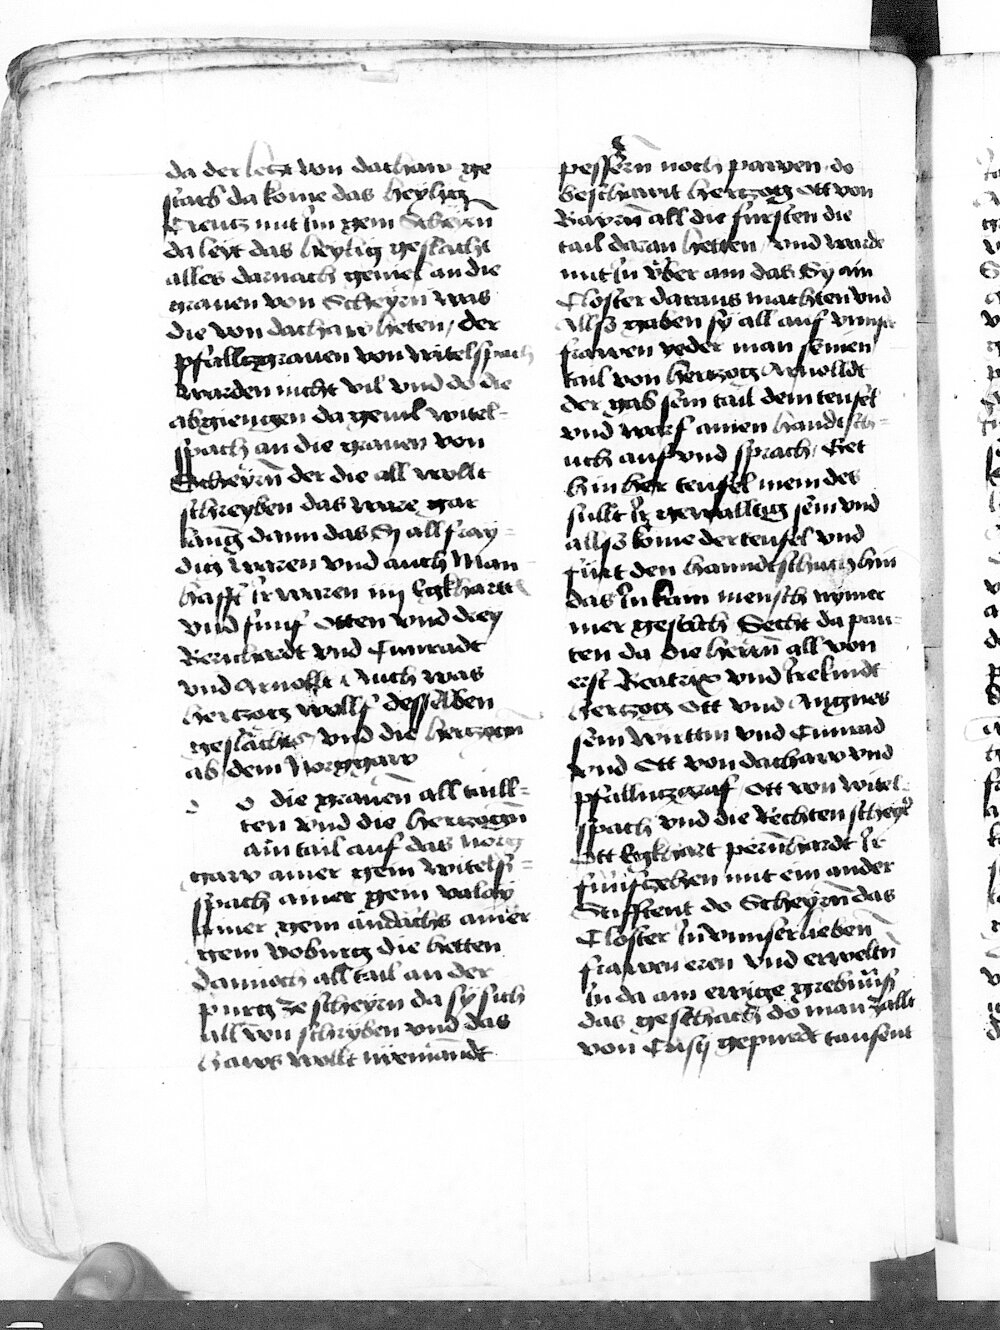 da der letzt von dachaw ge
starb da kome das heylig
Creutz mit im gem Scheyrn
da leyt das heylig geslächt
alles darnach geviel an die
grauen von Scheyrn was
die von dachaw heten / der
pfalltzgrauen von witelspach
warden nicht vil vnd do die
abgiengen da geuil witel-
spach an die grauen von
Scheyrn der die all wollt
schreyben das ware gar
lang dann das Sy all fray-
dig waren vnd auch Man
hafft ir waren iiij Egkhartt
vnd funf Otten vnd drey
Bernhardt vnd Cunradt
vnd Arnollt Auch was
hertzog wolf desselben
geslächts vnd die hertzogen
ab dem Norggaw
o die grauen all taill-
ten vnd die hertzogen
ain tail auf das norg
gaw ainer gem witels-
pach ainer gem valay
ainer gem andächs ainer
gem voburg die hetten
dannoch all tail an der
purg ze scheyrn da sy sich
all von schryben vnd das
haws wollt nyemandt
pessern noch pawen do
beschicket hertzog ott von
Bayrn all die fursten die
tail daran hetten / vnd warde
mit in vber ain das Sy ain
Closter daraus machten vnd
Allso gaben sy all auf vnnser
frawen yeder man seinen
tail von hertzog Arnolldt
der gab sein tail dem teufel
vnd warf ainen handtsch-
uch auf vnd sprach / Set
hin her teufel mein des
sullt ir gewalltig sein vnd
allso kome der teufel vnd
fürt den hanndtschuch hin
das in kain mensch nymer
mer gesach Secht da pau-
ten da die herrn all von
erst Beatrix vnd irekindt
hertzog Ott vnd Angnes
sein wirttin vnd Cunrad
vnd Ott von dachaw vnd
pfallnntzgraf Ott von witel-
spach vnd die Rechten scheyr
Ott Egkhart pernhardt ir
funfzehen mit ein ander
Stifftent do Scheyrn das
Closter in vnnser lieben
frawen eren vnd erweltn
in da ain ewige grebnuss
das geschach do man zallt
von Cristi gepurdt tausent